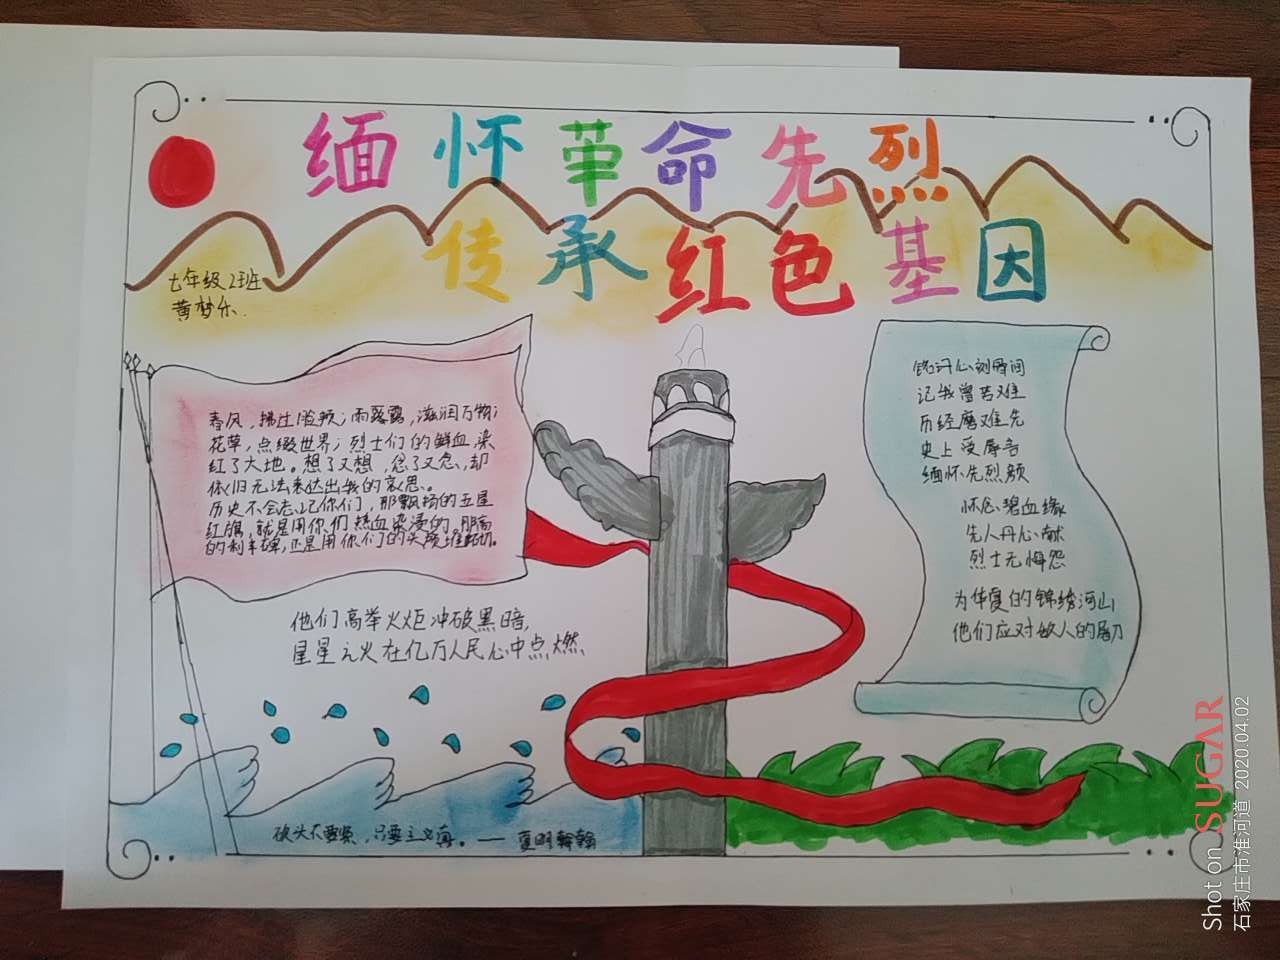 缅怀革命先烈
传承红色基因
七年级2班
黄梦乐
春风，拂过脸颊；雨露，滋润万物；
花草，点缀世界；烈士们的鲜血，染
红了大地。想了又想，念了又念，却
依旧无法表达出我的哀思。
历史不会忘记你们，那飘扬的五星
红旗，就是用你们热血染浸的。那高
的利丰碑，正是用你们的头颅堆砌的。
他们高举火炬冲破黑暗，
星星之火在亿万人民心中点燃
铭记心刻瞬间
记我曾苦难
历经磨难先
史上受辱言
缅怀先烈颜
怀念碧血缘
先人丹心献
烈士无悔怨
为华夏的锦绣河山
他们应对敌人的屠刀
砍头不要紧，只要主义真。——夏明翰
Shot on SUGAR
石家庄市淮河道 2020.04.02